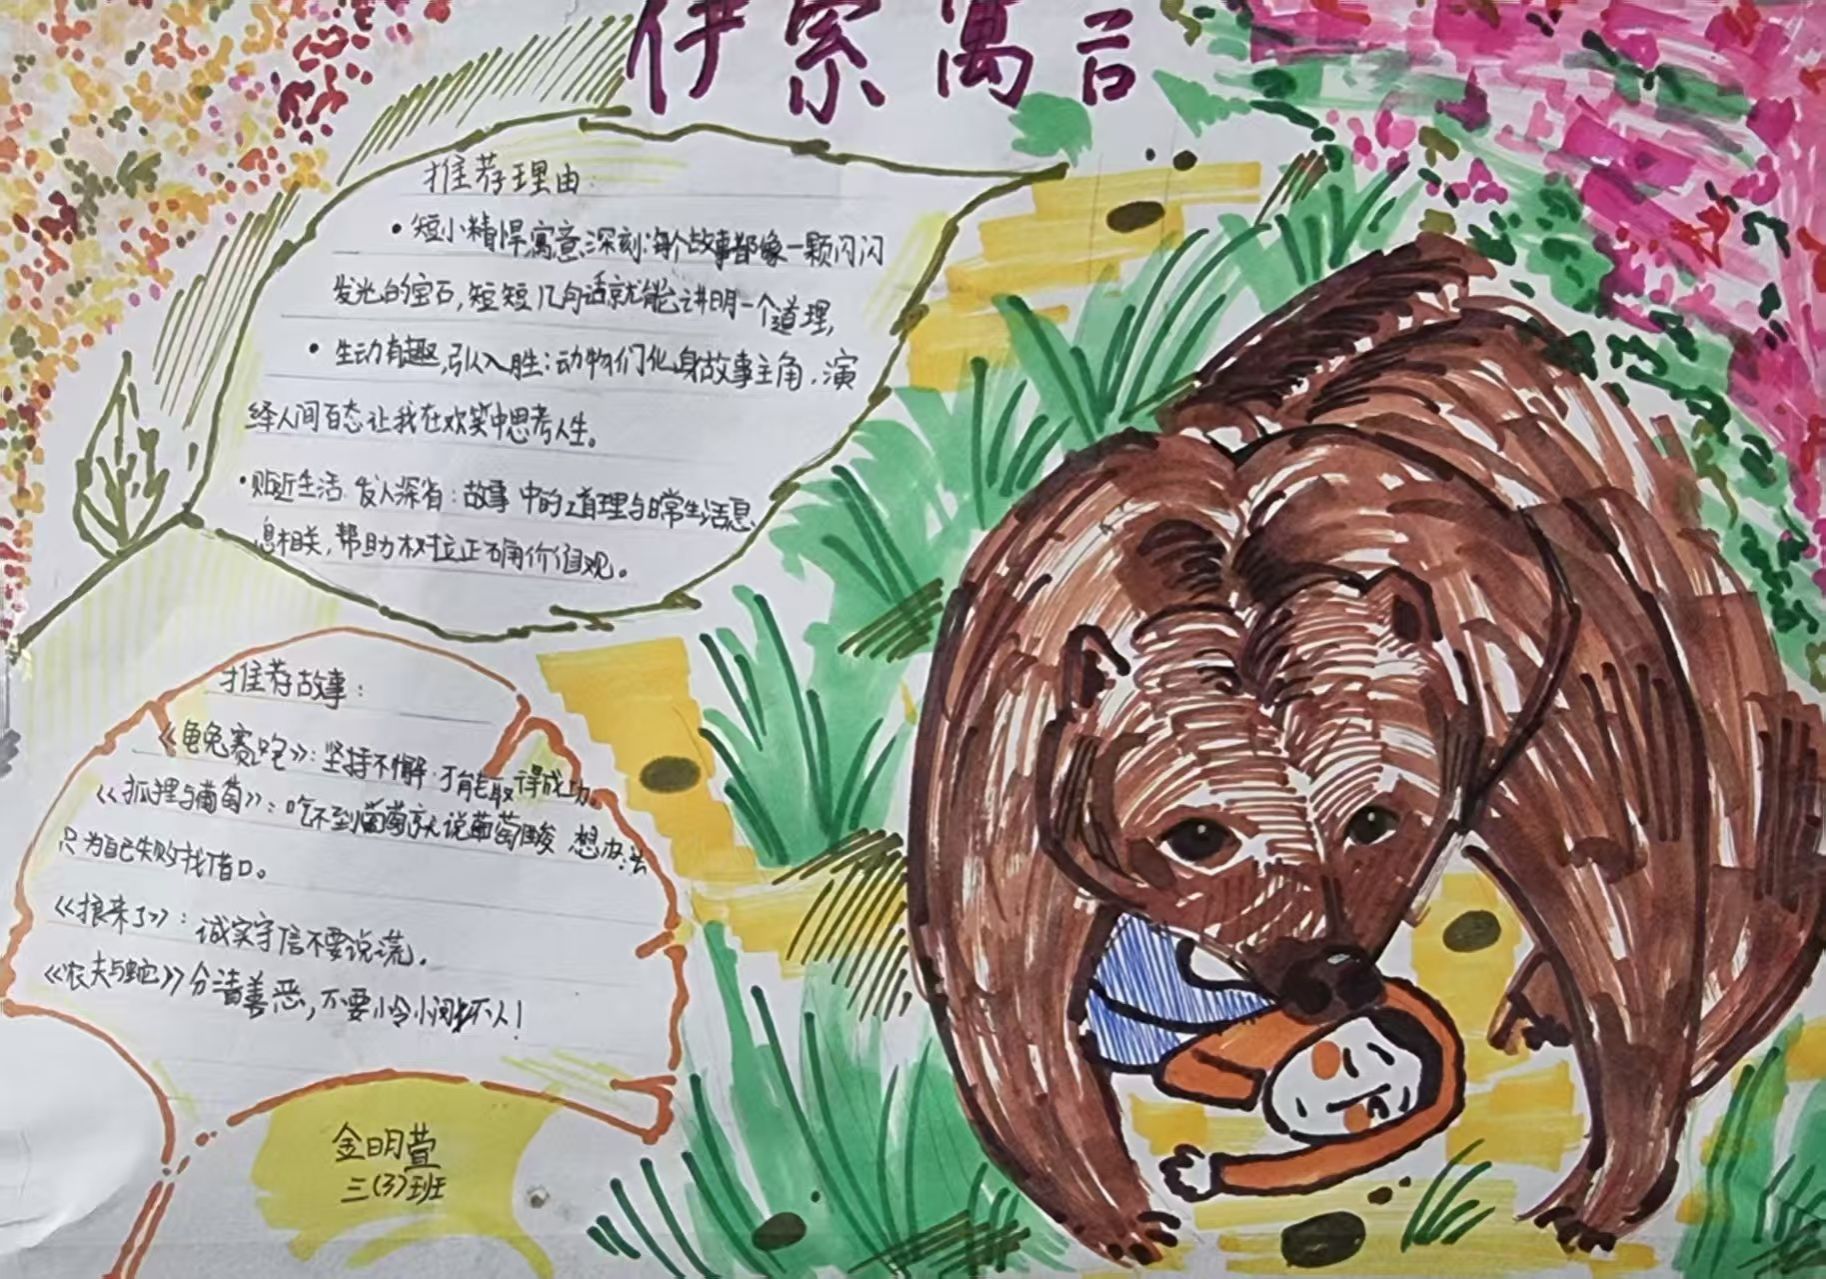 伊索寓言
推荐理由:
•短小精悍寓意深刻:每个故事都像一颗闪闪
发光的宝石,短短几句话就能讲明一个道理,
•生动有趣,引人入胜:动物们化身故事主角,演
绎人间百态让我在欢笑中思考人生。
•贴近生活 发人深省:故事中的道理与日常生活息
息相关,帮助树立正确价值观。
推荐故事:
《龟兔赛跑》:坚持不懈才能取得成功。
《狐狸与葡萄》:吃不到葡萄就说葡萄酸 想办法
只为自己失败找借口。
《狼来了》:诚实守信不要说谎。
《农夫与蛇》分清善恶,不要
人!
金明萱
三(3)班